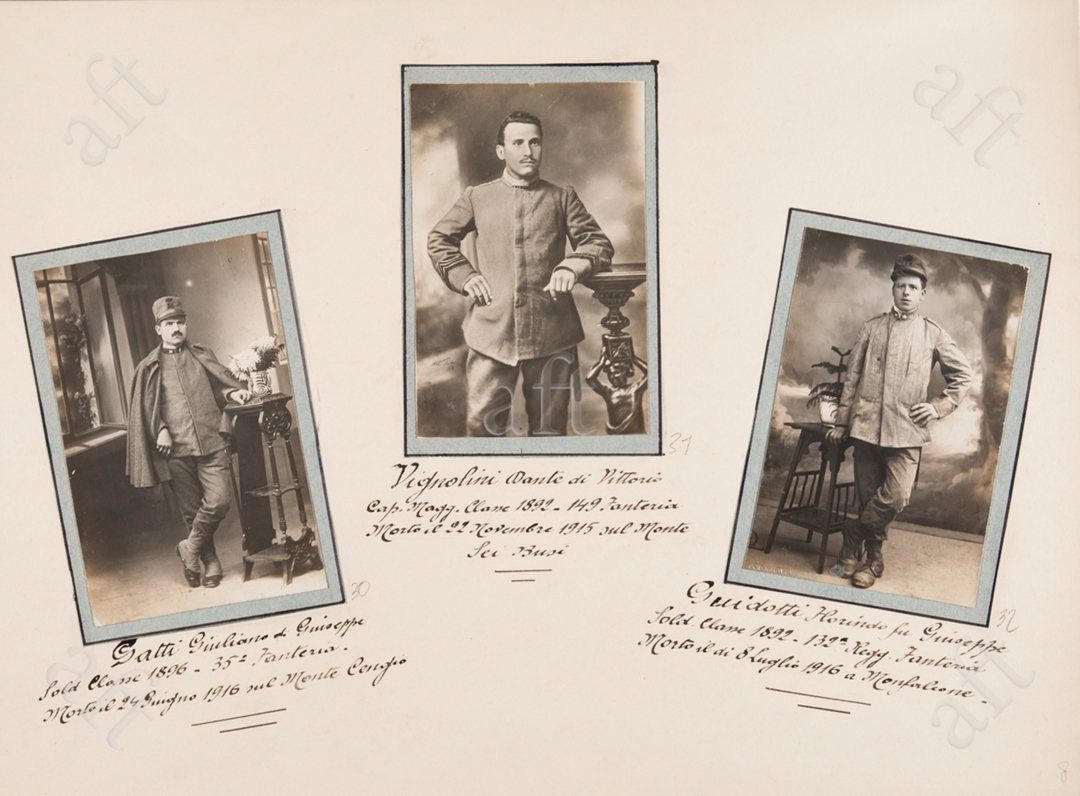 aft
aft
aft
30
Gatti Giuliano di Giuseppe
Sold Classe 1896 - 35º Fanteria -
Morto il 24 Giugno 1916 sul Monte Cengio
31
Vignolini Dante di Vittorio
Cap. Magg. Classe 1892 - 149 Fanteria
Morto il 22 Novembre 1915 sul Monte
Sei Busi
32
Guidotti Florindo fu Giuseppe
Sold Classe 1892 - 132ª Regg. Fanteria
Morto il dì 8 Luglio 1916 a Monfalcone -
aft
8